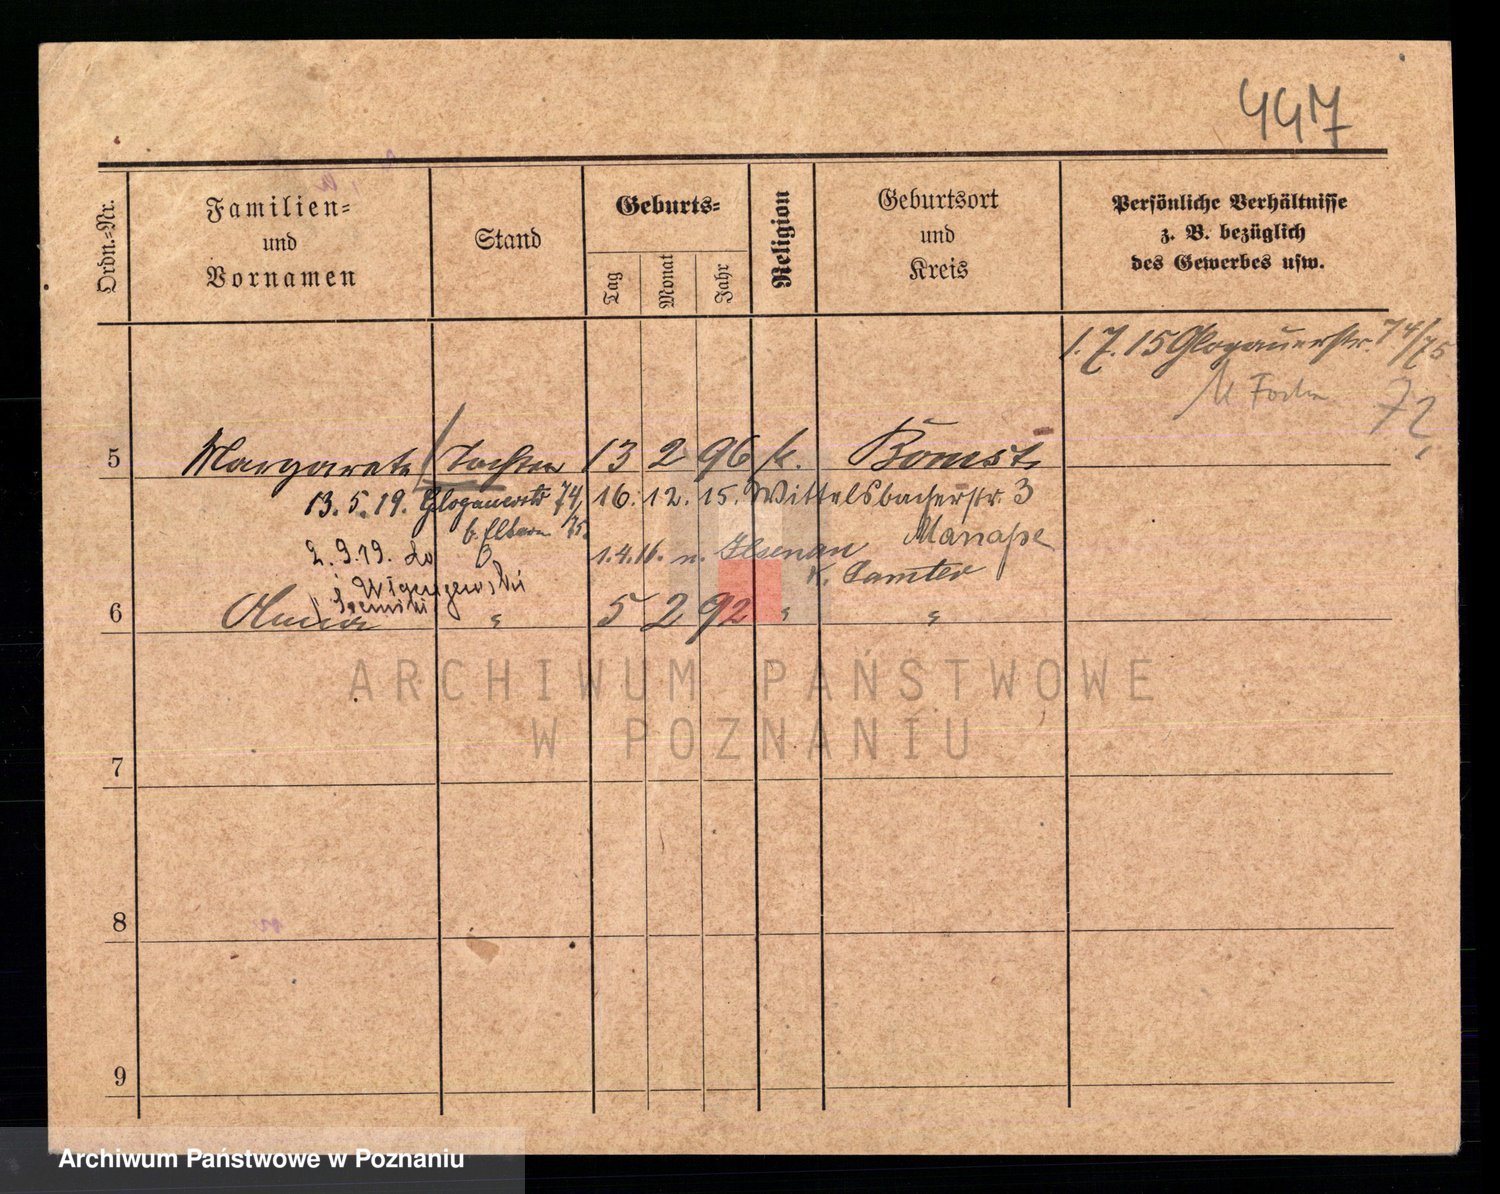 447
Ordn.-Nr.
Familien-
und
Vornamen
Stand
Geburts-
Tag
Monat
Jahr
Religion
Geburtsort
und
Kreis
Persönliche Verhältnisse
z. B. bezüglich
des Gewerbes usw.
1.7.15 Glogauerstr. 74/75
72
5 Margarete Tochter 13 2 96 k. Bomst
13.5.19. Glogauerstr 74/75. 16.12.15. Wittelsbacherstr. 3
b. Eltern
2.9.19. 1.4.16 n.
K. Samter
6 5 2 92 " "
ARCHIWUM PAŃSTWOWE
W POZNANIU
7
8
9
Archiwum Państwowe w Poznaniu